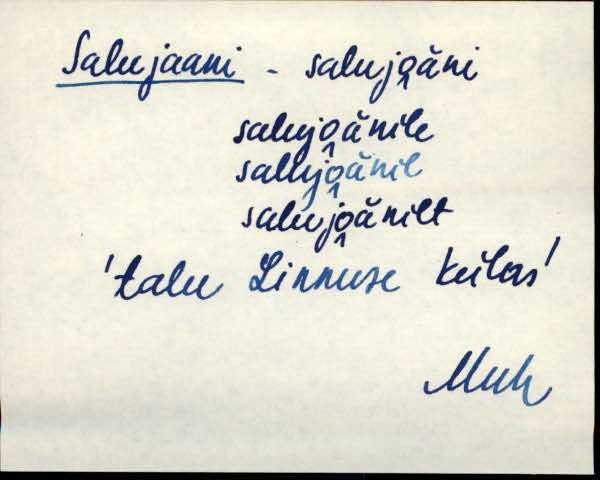 Salujaani - salujo̭ăni
salujo̭ănile
salujo̭ănil
salujo̭ănilt
'talu Linnuse külas'
Muh